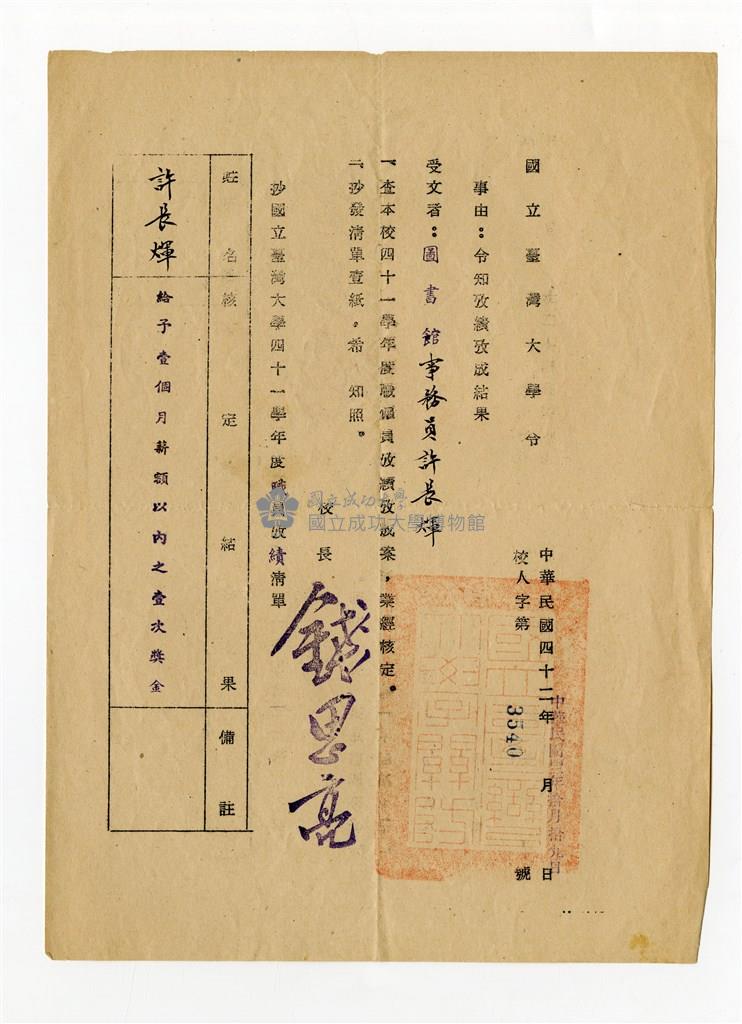 國立臺灣大學令
中華民國四十二年 月 日
校人字第 3540 號
事由：令知攷績攷成結果
受文者：圖書館事務員許長輝
一、查本校四十一學年度職僱員攷績攷成案，業經核定。
二、抄發清單壹紙。希 知照。
校長 錢思亮
抄國立臺灣大學四十一學年度職員攷績清單
姓名 核定結果 備註
許長輝 給予壹個月薪額以內之壹次獎金
國立成功大學
國立成功大學博物館